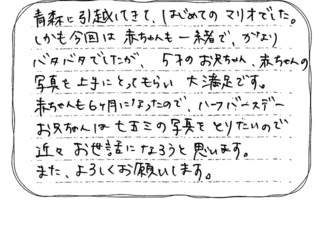 青森に引越してきて、はじめてのマリオでした。
しかも今回は赤ちゃんも一緒で、かなり
バタバタでしたが、5才のお兄ちゃん、赤ちゃんの
写真を上手にとってもらい大満足です。
赤ちゃんも6ヶ月になったので、ハーフバースデー
お兄ちゃんは七五三の写真をとりたいので
近々お世話になろうと思います。
また、よろしくお願いします。